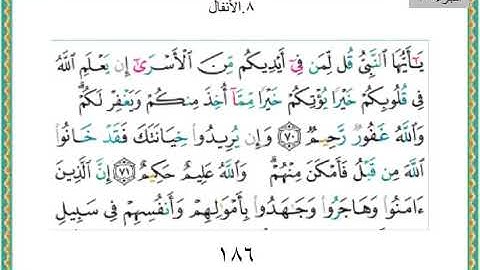 ٨.الأنفال
يَـٰٓأَيُّهَا ٱلنَّبِىُّ قُل لِّمَن فِىٓ أَيْدِيكُم مِّنَ ٱلْأَسْرَىٰٓ إِن يَعْلَمِ ٱللَّهُ
فِى قُلُوبِكُمْ خَيْرًا يُؤْتِكُمْ خَيْرًا مِّمَّآ أُخِذَ مِنكُمْ وَيَغْفِرْ لَكُمْ ۗ
وَٱللَّهُ غَفُورٌ رَّحِيمٌ ٧٠ وَإِن يُرِيدُوا۟ خِيَانَتَكَ فَقَدْ خَانُوا۟
ٱللَّهَ مِن قَبْلُ فَأَمْكَنَ مِنْهُمْ ۗ وَٱللَّهُ عَلِيمٌ حَكِيمٌ ٧١ إِنَّ ٱلَّذِينَ
ءَامَنُوا۟ وَهَاجَرُوا۟ وَجَـٰهَدُوا۟ بِأَمْوَٰلِهِمْ وَأَنفُسِهِمْ فِى سَبِيلِ
١٨٦